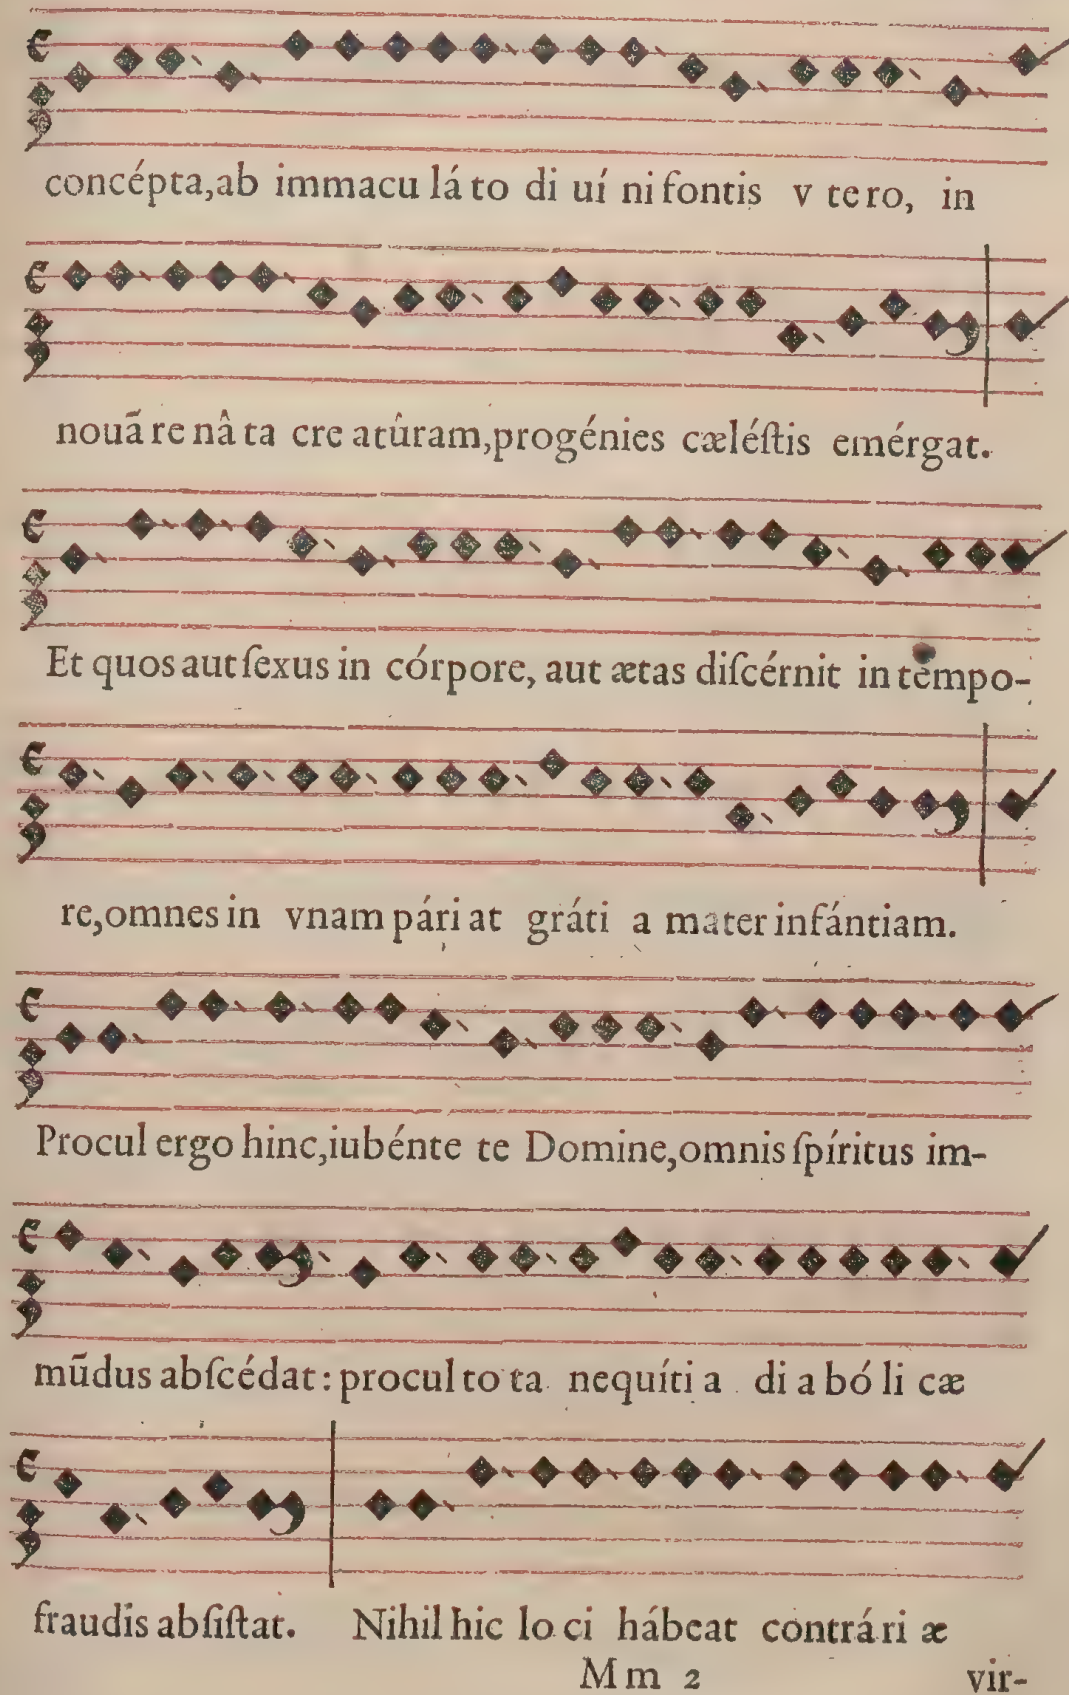 concépta,ab immacu lá to di uí ni fontis v te ro, in
nouã re nâ ta cre atûram,progénies cæléſtis emérgat.
Et quos aut ſexus in córpore, aut ætas diſcérnit in tẽmpo-
re,omnes in vnam pári at gráti a mater infántiam.
Procul ergo hinc,iubénte te Domine,omnis ſpíritus im-
mũdus abſcédat: procul to ta nequíti a di a bó li cæ
fraudis abſiſtat. Nihil hic lo ci hábeat contrá ri æ
M m 2 vir-